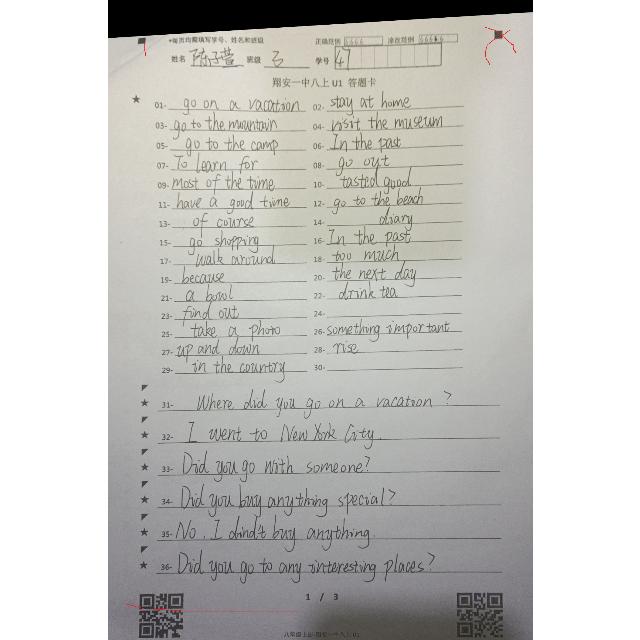 *每页均需填写学号、姓名和班级 正确范例 6666 涂改范例
姓名 陈子萱 班级 学号 47
翔安一中八上U1 答题卡
★ 01- go on a vacation 02- stay at home
03- go to the mountain 04- visit the museum
05- go to the camp 06- In the past
07- To learn for 08- go out
09- most of the time 10- tasted good
11- have a good time 12- go to the beach
13- of course 14- diary
15- go shopping 16- In the past
17- walk around 18- too much
19- because 20- the next day
21- a bowl 22- drink tea
23- find out 24-
25- take a photo 26- something important
27- up and down 28- rise
29- in the country 30-
★ 31- Where did you go on a vacation?
★ 32- I went to New York City.
★ 33- Did you go with someone?
★ 34- Did you buy anything special?
★ 35- No. I dind't buy anything.
★ 36- Did you go to any interesting places?
1 / 3
八年级上册-翔安一中八上U1